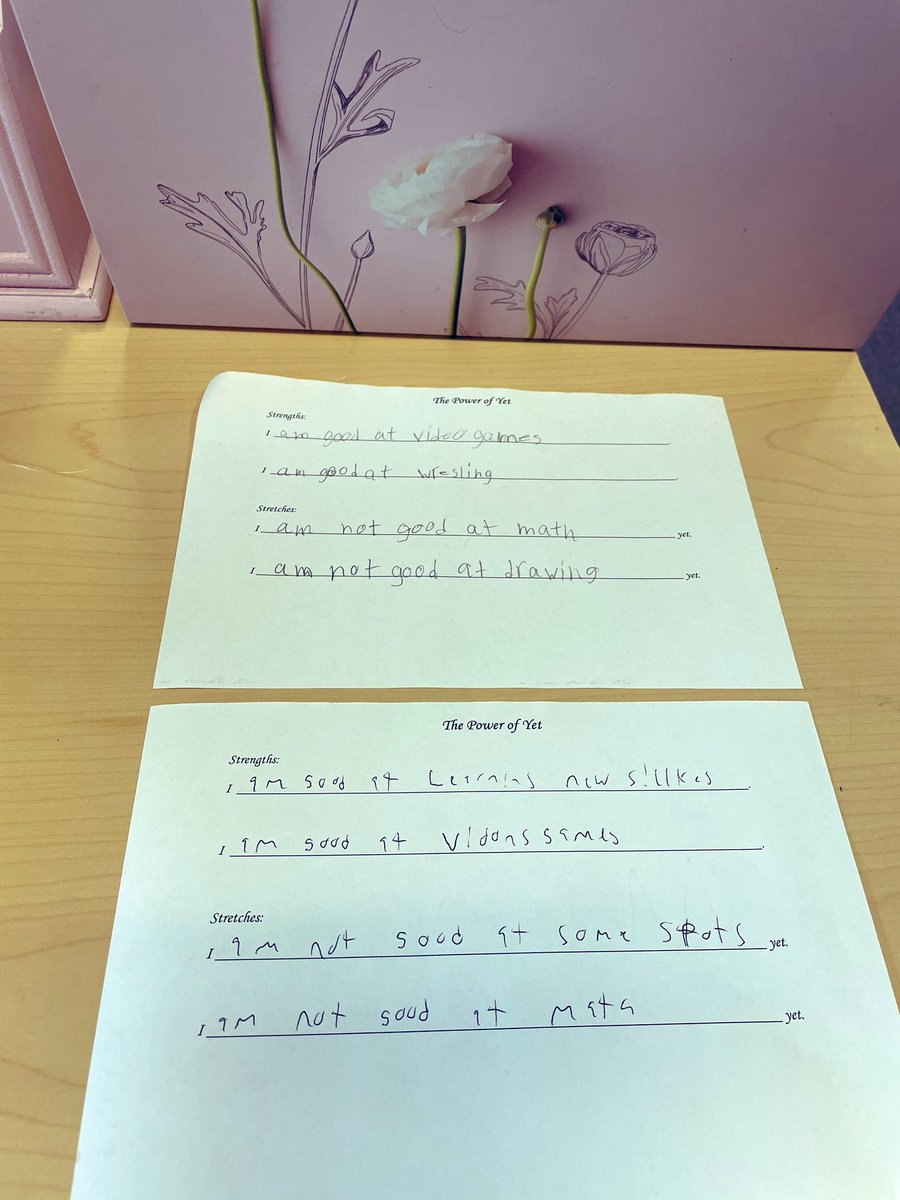 The Power of Yet
Strengths:
I am good at video games
I am good at wresling
Stretches:
I am not good at math yet.
I am not good at drawing yet.
The Power of Yet
Strengths:
I am good at Learning new sillkes.
I am good at Vidons games.
Stretches:
I am not good at some spots yet.
I am not good at math yet.